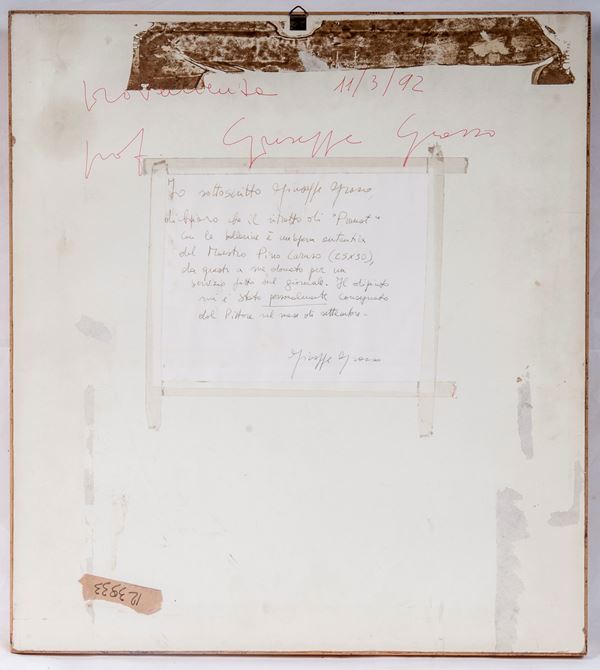 provenienza 11/3/92
prof. Giuseppe Grasso
Io sottoscritto Giuseppe Grasso,
dichiaro che il ritratto di "Proust"
con le ballerine è un'opera autentica
del Maestro Pino Caruso (25x30),
da questi a me donato per un
servizio fatto sul giornale. Il dipinto
mi è stato personalmente consegnato
dal Pittore nel mese di settembre.
Giuseppe Grasso
123933